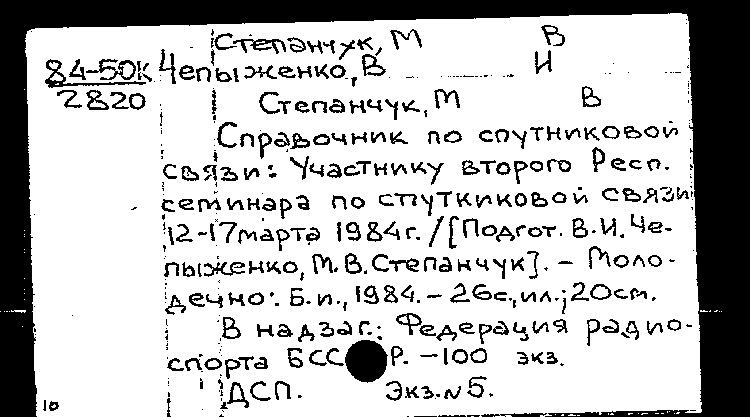 Степанчук, М В
84-50К Чепыженко, В И
2820 Степанчук, М В
Справочник по спутниковой
связи: Участнику второго Респ.
семинара по спуткиковой связи
12-17 марта 1984г. / [Подгот. В.И. Че-
пыженко, М.В. Степанчук]. - Моло-
дечно: Б.и., 1984. - 26с., ил.; 20см.
В надзаг.: Федерация радио-
спорта БССР. - 100 экз.
ДСП. Экз. N 5.
10